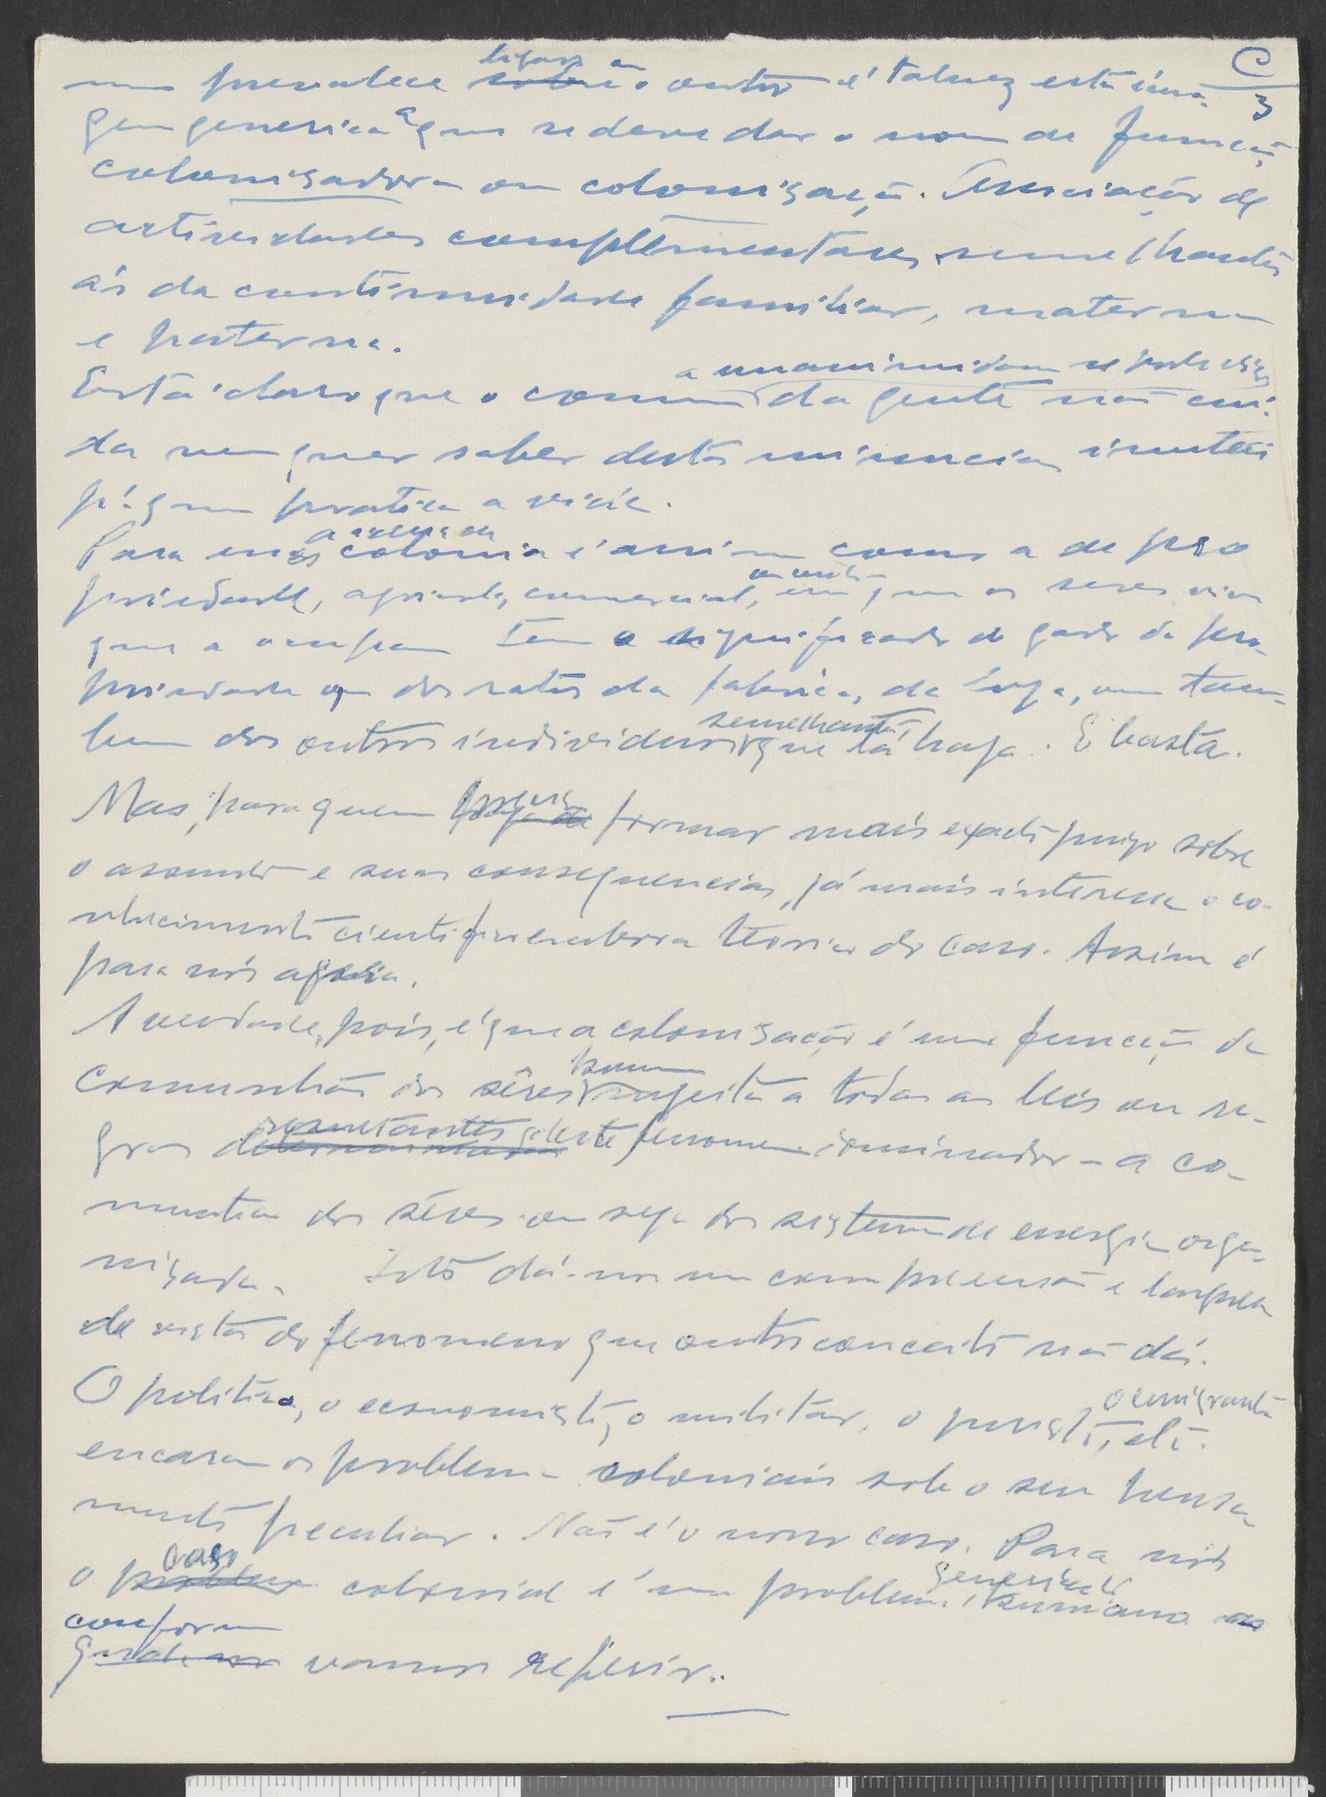 C
3
prevalece o outro é talvez esta ima-
gem generica a que se deve dar o nome de funcção
colonisadora ou colonisação. Associação de
actividades complementares, semelhantes
ás da continuidade familiar, materna
e paterna.
Está claro que o comum da gente não cui-
da nem quer saber desta minucia inutei
pratica a
Para esses a ideia de colonia é assim como a de pro
priedade, agricola, comercial, em que os seres vivos
que a ocupam tem o significado do gado da pro-
priedade ou dos ratos da fabrica, da loja, ou tam-
bem dos outros individuos semelhantes que lá haja. E basta.
Mas, para quem formar mais exacto juizo sobre
o assunto e suas consequencias, já mais interessa o co-
nhecimento teoria do caso. Assim é
para nós agora.
A verdade, pois, é que a colonisação é uma funcção da
comunhão dos sêres sugeita a todas as leis ou re-
gras deste fenomeno dominador - a co-
munhão dos sêres ou seja dos sistemas de energia orga-
nisada. Isto dá-nos uma compreensão e largueza
de vista do fenomeno que outro conceito não dá.
O politico, o economista, o militar, o jurista, o emigrante, etc.
encaram os problemas coloniais sob o seu pensa
mento peculiar. Não é o nosso caso. Para nós
o caso colonial é um problema humano
conforme
vamos referir.